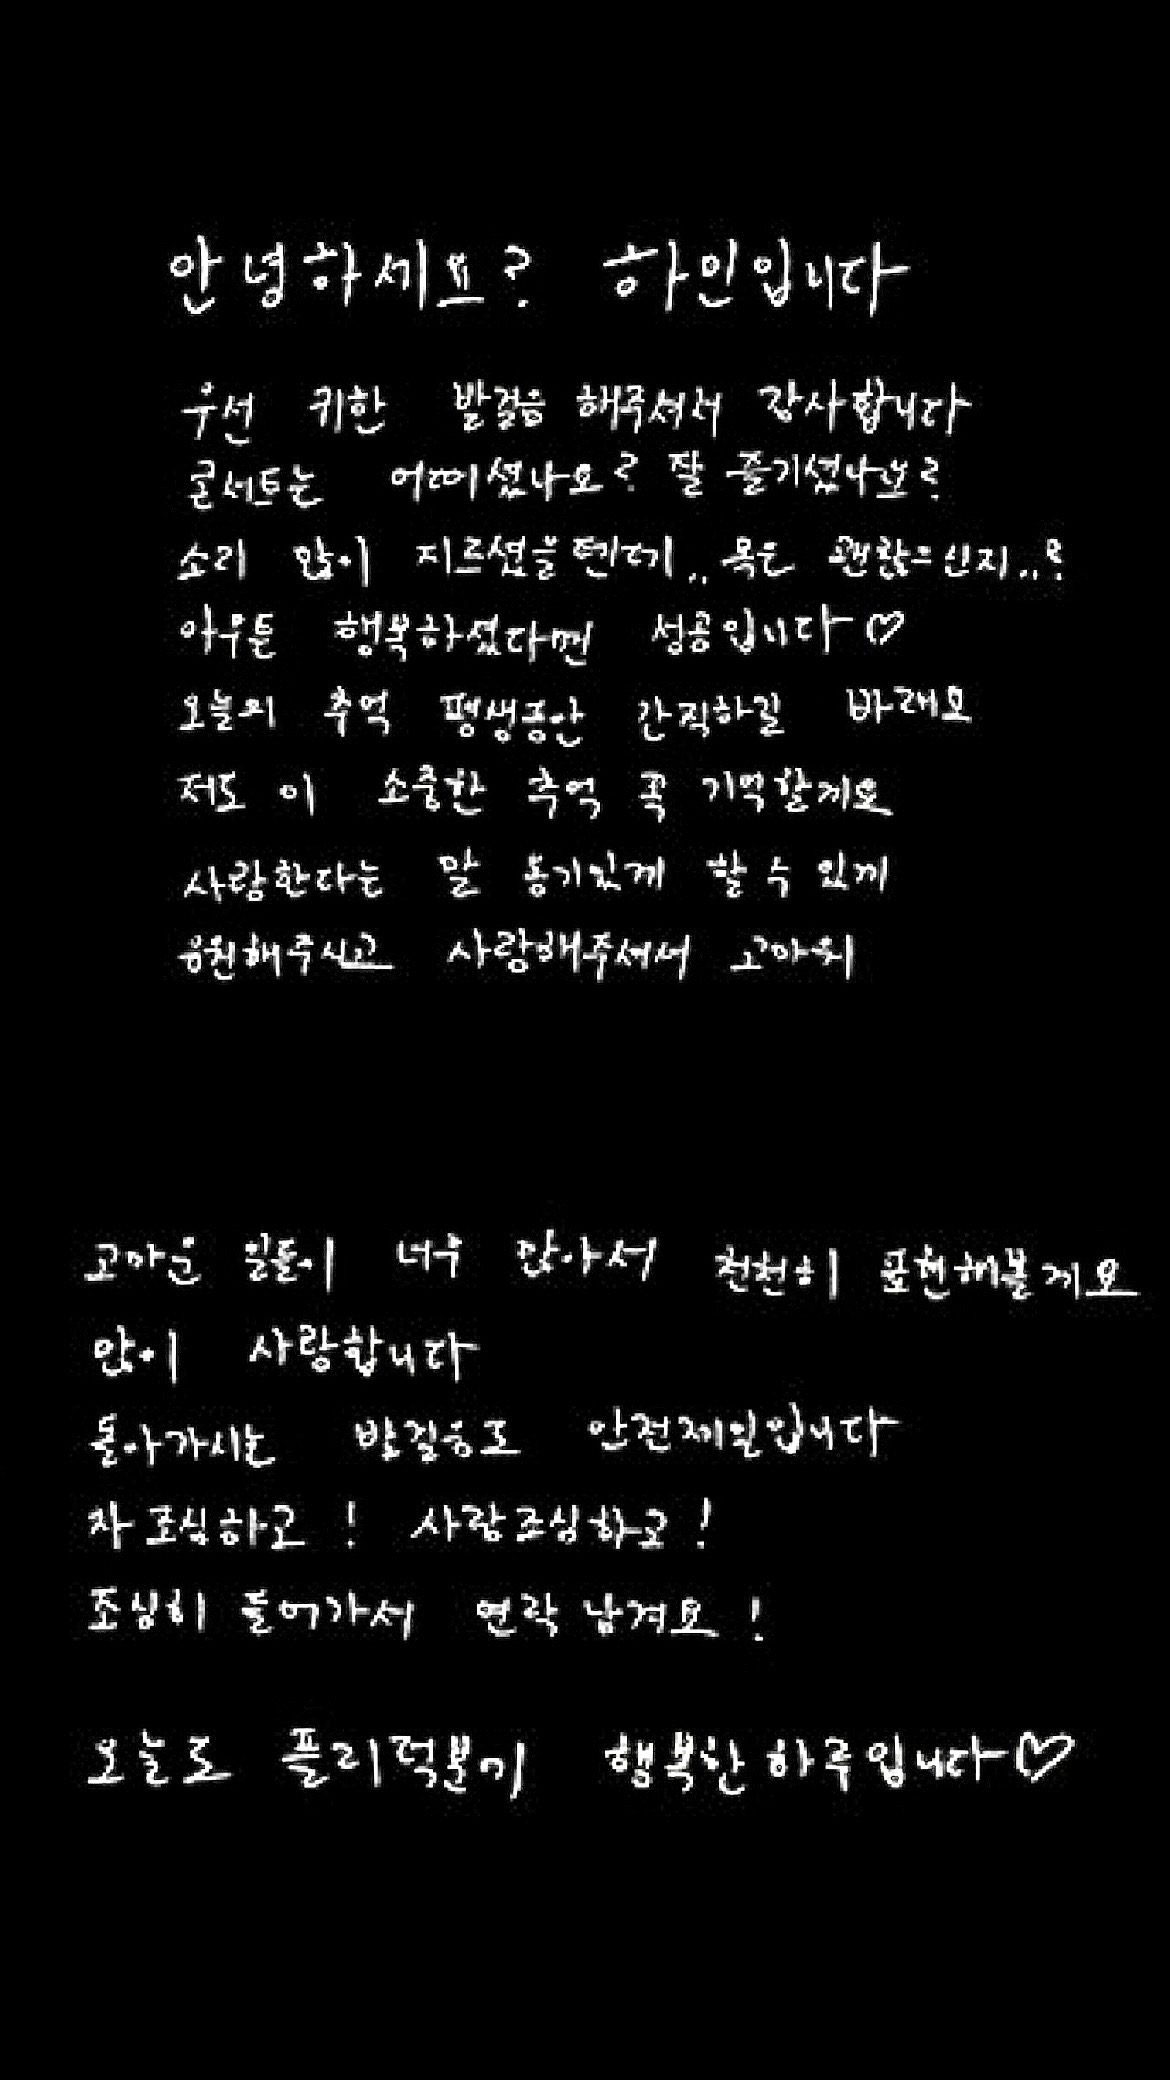 안녕하세요? 하민입니다
우선 귀한 발걸음 해주셔서 감사합니다
콘서트는 어떠셨나요? 잘 즐기셨나요?
소리 많이 지르셨을텐데.. 목은 괜찮으신지..?
아무튼 행복하셨다면 성공입니다♡
오늘의 추억 평생동안 간직하길 바래요
저도 이 소중한 추억 꼭 기억할게요
사랑한다는 말 용기있게 할 수 있게
응원해주시고 사랑해주셔서 고마워
고마운 일들이 너무 많아서 천천히 표현해볼게요
많이 사랑합니다
돌아가시는 발걸음도 안전제일입니다
차 조심하고! 사람조심하고!
조심히 들어가서 연락 남겨요!
오늘도 플리덕분에 행복한 하루입니다♡